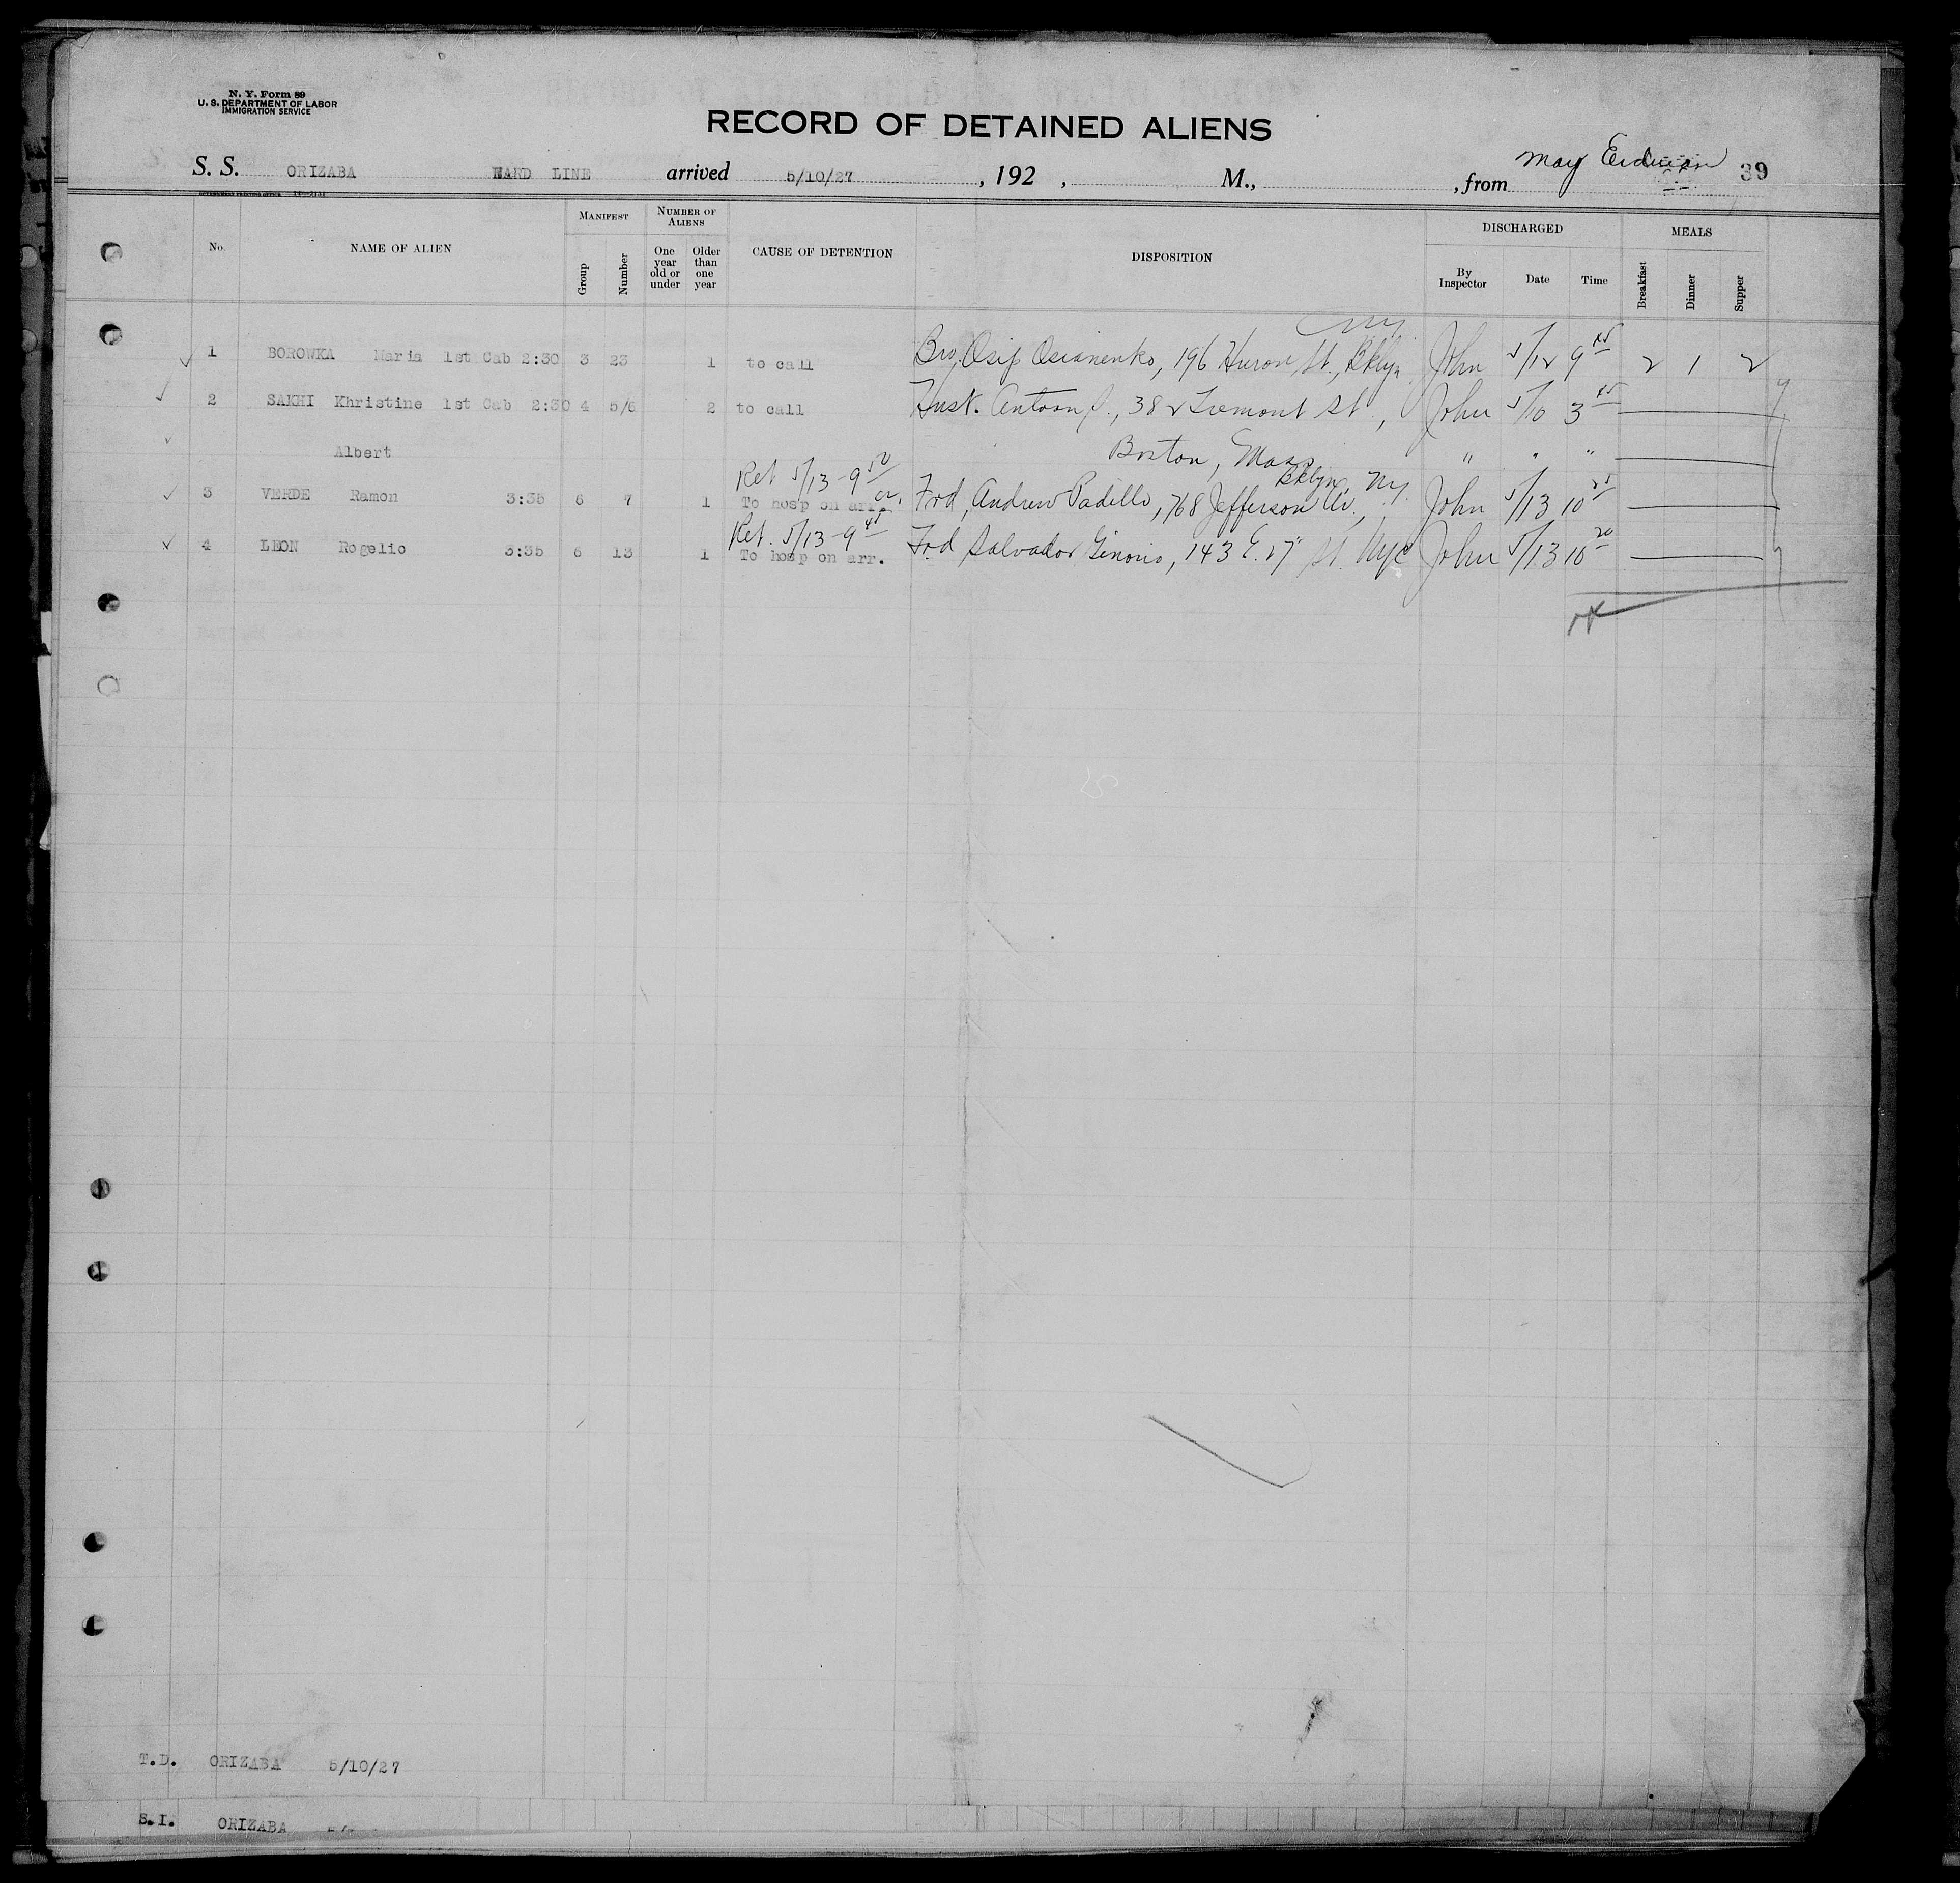 N. Y. Form 89
U. S. DEPARTMENT OF LABOR
IMMIGRATION SERVICE
RECORD OF DETAINED ALIENS
S. S. ORIZABA WARD LINE arrived 5/10/27, 192 , M., , from May Erdman 39
No. NAME OF ALIEN MANIFEST Group Number NUMBER OF ALIENS One year old or under Older than one year CAUSE OF DETENTION DISPOSITION DISCHARGED By Inspector Date Time MEALS Breakfast Dinner Supper
NY
1 BOROWKA Maria 1st Cab 2:30 3 23 1 to call Bro, Osip Osianenko, 196 Huron St., Bklyn John 5/12 9 45 2 1 2
2 SAKHI Khristine 1st Cab 2:30 4 5/6 2 to call Hust. Antoon J., 382 Tremont St, John 5/10 3 45
Albert Boston, Mass " " "
Ret 5/13-9 50 Bklyn, NY.
3 VERDE Ramon 3:35 6 7 1 To hosp on arr. Frd, Andrew Padillo, 768 Jefferson Av., John 5/13 10 25
Ret. 5/13-9 45
4 LEON Rogelio 3:35 6 13 1 To hosp on arr. Frd Salvador Ginorio, 143 E. 27" St. Nyc John 5/13 10 20
T.D. ORIZABA 5/10/27
S.I. ORIZABA